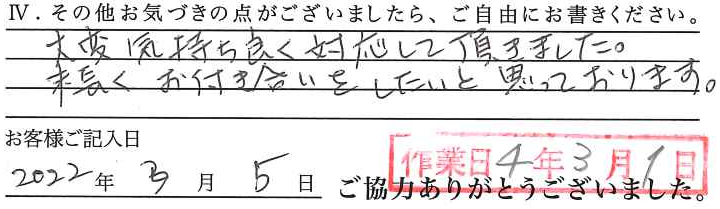 Ⅳ．その他お気づきの点がございましたら、ご自由にお書きください。
大変気持ち良く対応して頂きました。
末長くお付き合いをしたいと思っております。
お客様ご記入日
作業日4年3月1日
2022年3月5日 ご協力ありがとうございました。